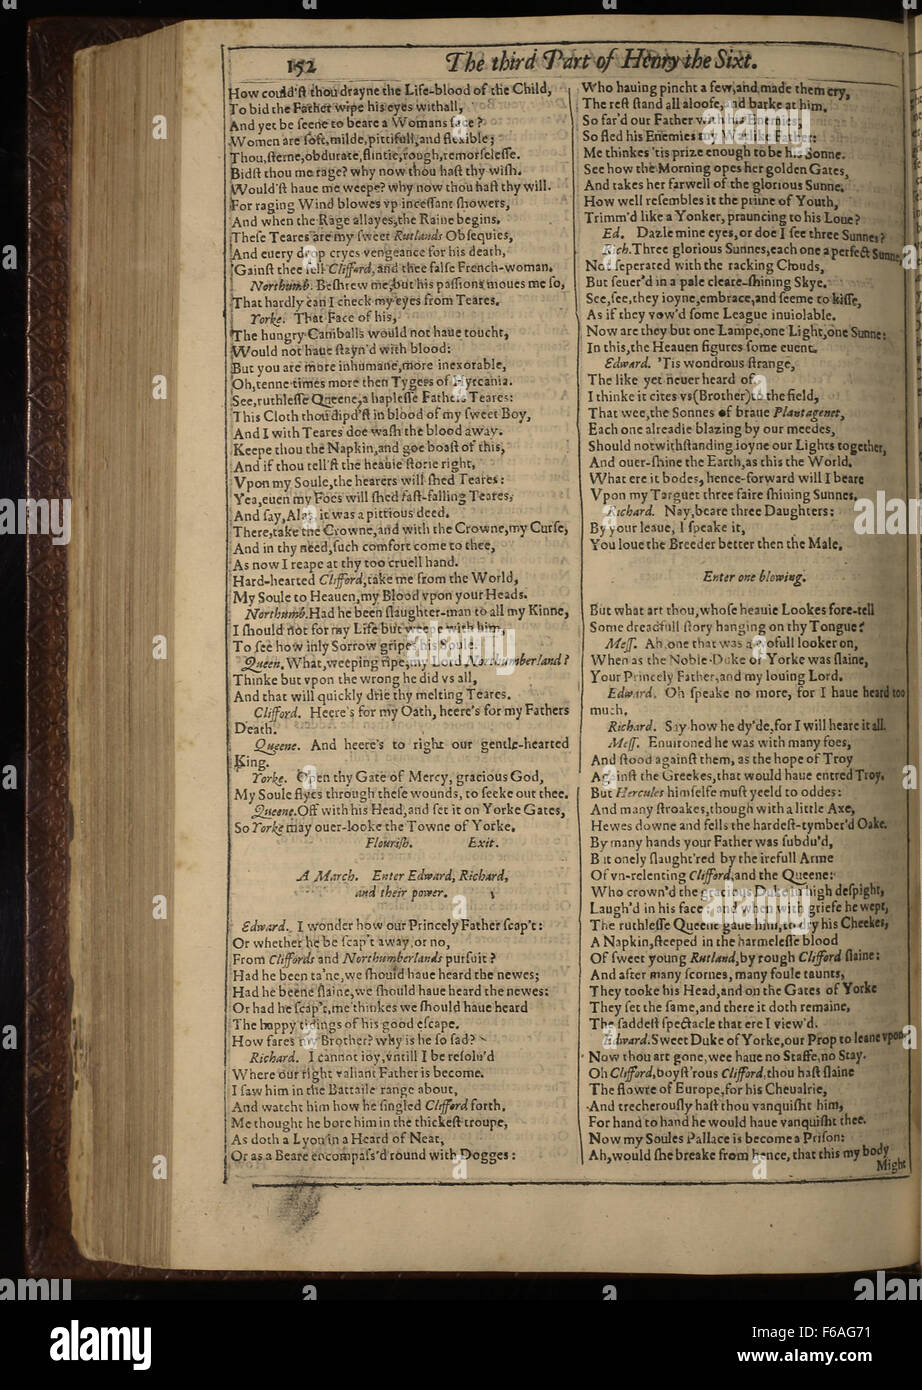 152 The third Part of Henry the Sixt.
How could'ſt thou drayne the Life-blood of the Child,
To bid the Father wipe his eyes withall,
And yet be ſeene to beare a Womans face?
Women are ſoft, milde, pittifull, and flexible;
Thou, ſterne, obdurate, flintie, rough, remorſeleſſe.
Bidſt thou me rage? why now thou haſt thy wiſh.
Would'ſt haue me weepe? why now thou haſt thy will.
For raging Wind blowes vp inceſſant ſhowers,
And when the Rage allayes, the Raine begins.
Theſe Teares are my ſweet Rutlands Obſequies,
And euery drop cryes vengeance for his death,
'Gainſt thee fell Clifford, and thee falſe French-woman.
Northumb. Beſhrew me, but his paſſions moues me ſo,
That hardly can I check my eyes from Teares.
Yorke. That Face of his,
The hungry Caniballs would not haue toucht,
Would not haue ſtayn'd with blood:
But you are more inhumane, more inexorable,
Oh, tenne times more then Tygers of Hyrcania.
See, ruthleſſe Queene, a hapleſſe Fathers Teares:
This Cloth thou dipd'ſt in blood of my ſweet Boy,
And I with Teares doe waſh the blood away.
Keepe thou the Napkin, and goe boaſt of this,
And if thou tell'ſt the heauie ſtorie right,
Vpon my Soule, the hearers will ſhed Teares:
Yea, euen my Foes will ſhed faſt-falling Teares,
And ſay, Alas, it was a pittious deed.
There, take the Crowne, and with the Crowne, my Curſe,
And in thy need, ſuch comfort come to thee,
As now I reape at thy too cruell hand.
Hard-hearted Clifford, take me from the World,
My Soule to Heauen, my Blood vpon your Heads.
Northumb. Had he been ſlaughter-man to all my Kinne,
I ſhould not for my Life but weepe with him,
To ſee how inly Sorrow gripes his Soule.
Queen. What, weeping ripe, my Lord Northumberland?
Thinke but vpon the wrong he did vs all,
And that will quickly drie thy melting Teares.
Clifford. Heere's for my Oath, heere's for my Fathers
Death.
Queene. And heere's to right our gentle-hearted
King.
Yorke. Open thy Gate of Mercy, gracious God,
My Soule flyes through theſe wounds, to ſeeke out thee.
Queene. Off with his Head, and ſet it on Yorke Gates,
So Yorke may ouer-looke the Towne of Yorke.
Flouriſh. Exit.
A March. Enter Edward, Richard,
and their power.
Edward. I wonder how our Princely Father ſcap't:
Or whether he be ſcap't away, or no,
From Cliffords and Northumberlands purſuit?
Had he been ta'ne, we ſhould haue heard the newes;
Had he beene ſlaine, we ſhould haue heard the newes:
Or had he ſcap't, me thinkes we ſhould haue heard
The happy tidings of his good eſcape.
How fares my Brother? why is he ſo ſad?
Richard. I cannot ioy, vntill I be reſolu'd
Where our right valiant Father is become.
I ſaw him in the Battaile range about,
And watcht him how he ſingled Clifford forth,
Me thought he bore him in the thickeſt troupe,
As doth a Lyon in a Heard of Neat,
Or as a Beare encompaſs'd round with Dogges:
Who hauing pincht a few, and made them cry,
The reſt ſtand all aloofe, and barke at him.
So far'd our Father with his Enemies,
So fled his Enemies my Warlike Father:
Me thinkes 'tis prize enough to be his Sonne.
See how the Morning opes her golden Gates,
And takes her farwell of the glorious Sunne.
How well reſembles it the prime of Youth,
Trimm'd like a Yonker, prauncing to his Loue?
Ed. Dazle mine eyes, or doe I ſee three Sunnes?
Rich. Three glorious Sunnes, each one a perfect Sunne,
Not ſeperated with the racking Clouds,
But ſeuer'd in a pale cleare-ſhining Skye.
See, ſee, they ioyne, embrace, and ſeeme to kiſſe,
As if they vow'd ſome League inuiolable.
Now are they but one Lampe, one Light, one Sunne:
In this, the Heauen figures ſome euent.
Edward. 'Tis wondrous ſtrange,
The like yet neuer heard of.
I thinke it cites vs (Brother) to the field,
That wee, the Sonnes of braue Plantagenet,
Each one alreadie blazing by our meedes,
Should notwithſtanding ioyne our Lights together,
And ouer-ſhine the Earth, as this the World.
What ere it bodes, hence-forward will I beare
Vpon my Targuet three faire ſhining Sunnes.
Richard. Nay, beare three Daughters:
By your leaue, I ſpeake it,
You loue the Breeder better then the Male.
Enter one blowing.
But what art thou, whoſe heauie Lookes fore-tell
Some dreadfull ſtory hanging on thy Tongue?
Meſſ. Ah, one that was a wofull looker on,
When as the Noble Duke of Yorke was ſlaine,
Your Princely Father, and my louing Lord.
Edward. Oh ſpeake no more, for I haue heard too
much.
Richard. Say how he dy'de, for I will heare it all.
Meſſ. Enuironed he was with many foes,
And ſtood againſt them, as the hope of Troy
Againſt the Greekes, that would haue entred Troy.
But Hercules himſelfe muſt yeeld to oddes:
And many ſtroakes, though with a little Axe,
Hewes downe and fells the hardeſt-tymber'd Oake.
By many hands your Father was ſubdu'd,
But onely ſlaught'red by the irefull Arme
Of vn-relenting Clifford, and the Queene:
Who crown'd the gracious Duke in high deſpight,
Laugh'd in his face: and when with griefe he wept,
The ruthleſſe Queene gaue him, to dry his Cheekes,
A Napkin, ſteeped in the harmeleſſe blood
Of ſweet young Rutland, by rough Clifford ſlaine:
And after many ſcornes, many foule taunts,
They tooke his Head, and on the Gates of Yorke
They ſet the ſame, and there it doth remaine,
The ſaddeſt ſpectacle that ere I view'd.
Edward. Sweet Duke of Yorke, our Prop to leane vpon,
Now thou art gone, wee haue no Staffe, no Stay.
Oh Clifford, boyſt'rous Clifford, thou haſt ſlaine
The flowre of Europe, for his Cheualrie,
And trecherouſly haſt thou vanquiſht him,
For hand to hand he would haue vanquiſht thee.
Now my Soules Pallace is become a Priſon:
Ah, would ſhe breake from hence, that this my body
Might
alamy
Image ID: F6AG71
www.alamy.com